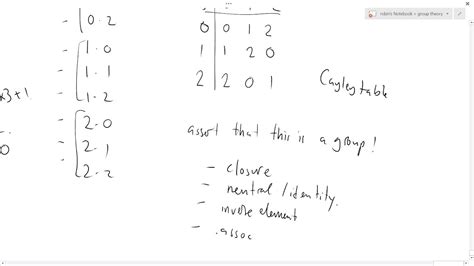 robin's Notebook » group theory
0 · 2
1 · 0
1 · 1
1 · 2
2 · 0
2 · 1
2 · 2
x3+1
0
0 1 2
0 0 1 2
1 1 2 0
2 2 0 1
Cayley table
assert that this is a group!
- closure
- neutral/identity.
- inverse element
- .assoc